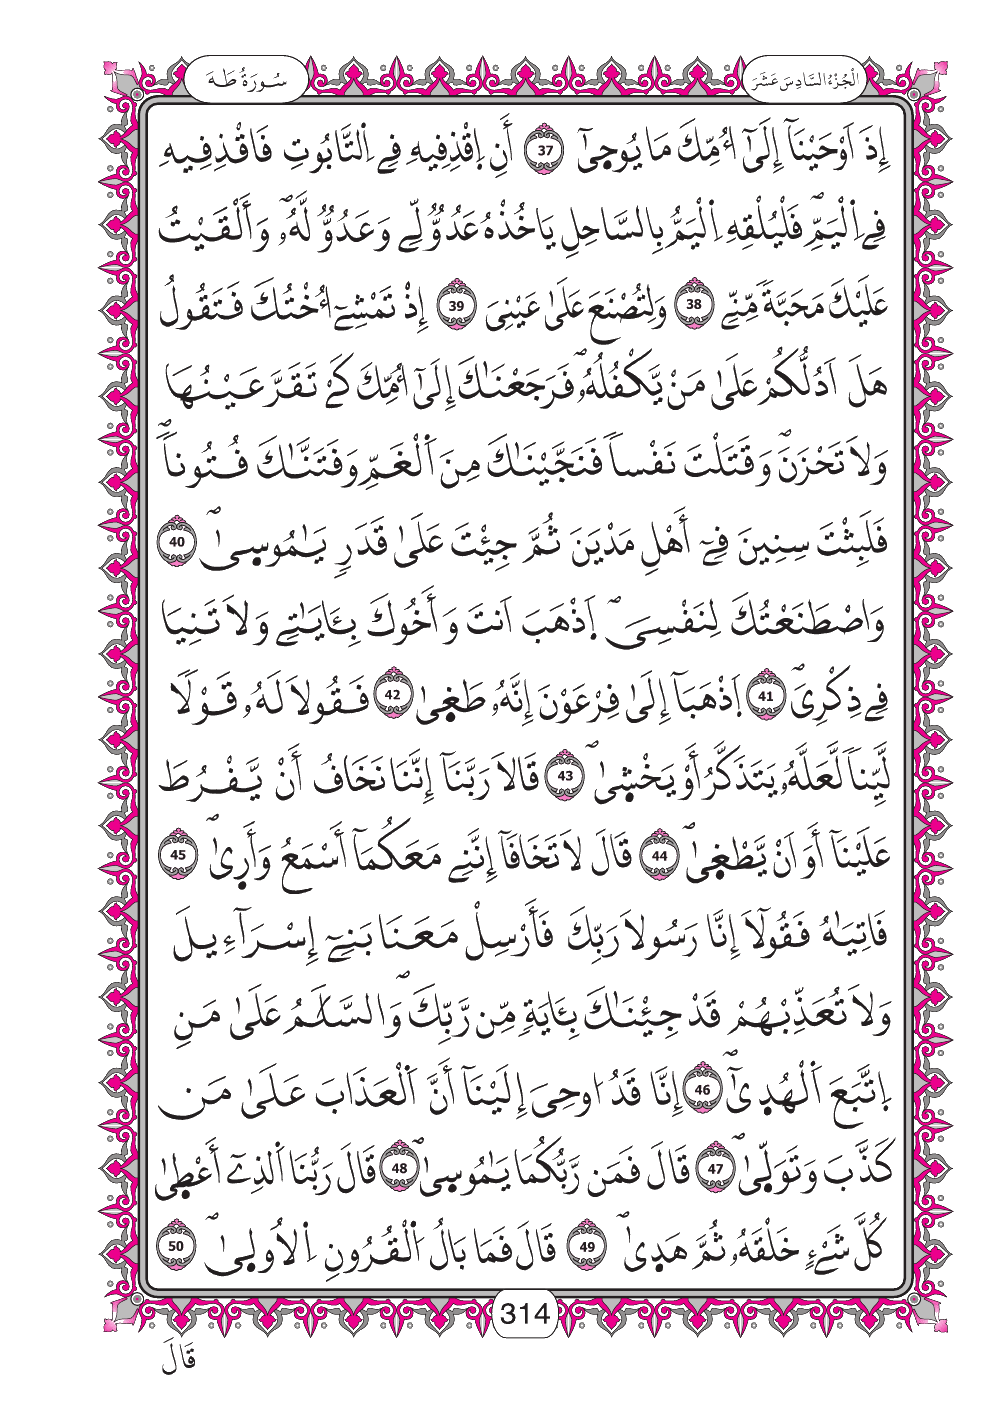 سُورَةُ طَهَ
الْجُزْءُ السَّادِسَ عَشَرَ
إِذَ اَوْحَيْنَآ إِلَىٰٓ أُمِّكَ مَا يُوحِىٰٓ 37 أَنِ اِقْذِفِيهِ فِے اِ۬لتَّابُوتِ فَاقْذِفِيهِ
فِے اِ۬لْيَمِّۖ فَلْيُلْقِهِ اِ۬لْيَمُّ بِالسَّاحِلِ يَاخُذْهُ عَدُوٌّ لِّے وَعَدُوٌّ لَّهُۥۖ وَأَلْقَيْتُ
عَلَيْكَ مَحَبَّةً مِّنِّے 38 وَلِتُصْنَعَ عَلَىٰ عَيْنِىَ 39 إِذْ تَمْشِےٓ أُخْتُكَ فَتَقُولُ
هَلَ اَدُلُّكُمْ عَلَىٰ مَنْ يَّكْفُلُهُۥۖ فَرَجَعْنَٰكَ إِلَىٰٓ أُمِّكَ كَےْ تَقَرَّ عَيْنُهَا
وَلَا تَحْزَنَۖ وَقَتَلْتَ نَفْساً فَنَجَّيْنَٰكَ مِنَ اَ۬لْغَمِّ وَفَتَنَّٰكَ فُتُوناًۖ
فَلَبِثْتَ سِنِينَ فِےٓ أَهْلِ مَدْيَنَ ثُمَّ جِئْتَ عَلَىٰ قَدَرٍ يَٰمُوسِىٰۖ 40
وَاصْطَنَعْتُكَ لِنَفْسِىَۖ اِ۪ذْهَبَ اَنتَ وَأَخُوكَ بِـَٔايَٰتِے وَلَا تَنِيَا
فِے ذِكْرِىَۖ 41 اِ۪ذْهَبَآ إِلَىٰ فِرْعَوْنَ إِنَّهُۥ طَغِىٰ 42 فَقُولَا لَهُۥ قَوْلًا
لَّيِّناً لَّعَلَّهُۥ يَتَذَكَّرُ أَوْ يَخْشِىٰۖ 43 قَالَا رَبَّنَآ إِنَّنَا نَخَافُ أَنْ يَّفْرُطَ
عَلَيْنَآ أَوَ اَنْ يَّطْغِىٰۖ 44 قَالَ لَا تَخَافَآ إِنَّنِے مَعَكُمَآ أَسْمَعُ وَأَرِىٰۖ 45
فَاتِيَٰهُ فَقُولَآ إِنَّا رَسُولَا رَبِّكَ فَأَرْسِلْ مَعَنَا بَنِےٓ إِسْرَآءِيلَ
وَلَا تُعَذِّبْهُمْ قَدْ جِئْنَٰكَ بِـَٔايَةٍ مِّن رَّبِّكَۖ وَالسَّلَٰمُ عَلَىٰ مَنِ
اِ۪تَّبَعَ اَ۬لْهُدِىٰٓۖ 46 إِنَّا قَدُ ا۟وحِىَ إِلَيْنَآ أَنَّ اَ۬لْعَذَابَ عَلَىٰ مَن
كَذَّبَ وَتَوَلِّىٰۖ 47 قَالَ فَمَن رَّبُّكُمَا يَٰمُوسِىٰۖ 48 قَالَ رَبُّنَا اَ۬لَّذِےٓ أَعْطِىٰ
كُلَّ شَےْءٍ خَلْقَهُۥ ثُمَّ هَدِىٰۖ 49 قَالَ فَمَا بَالُ اُ۬لْقُرُونِ اِ۬لُاولِىٰۖ 50
314
قَالَ